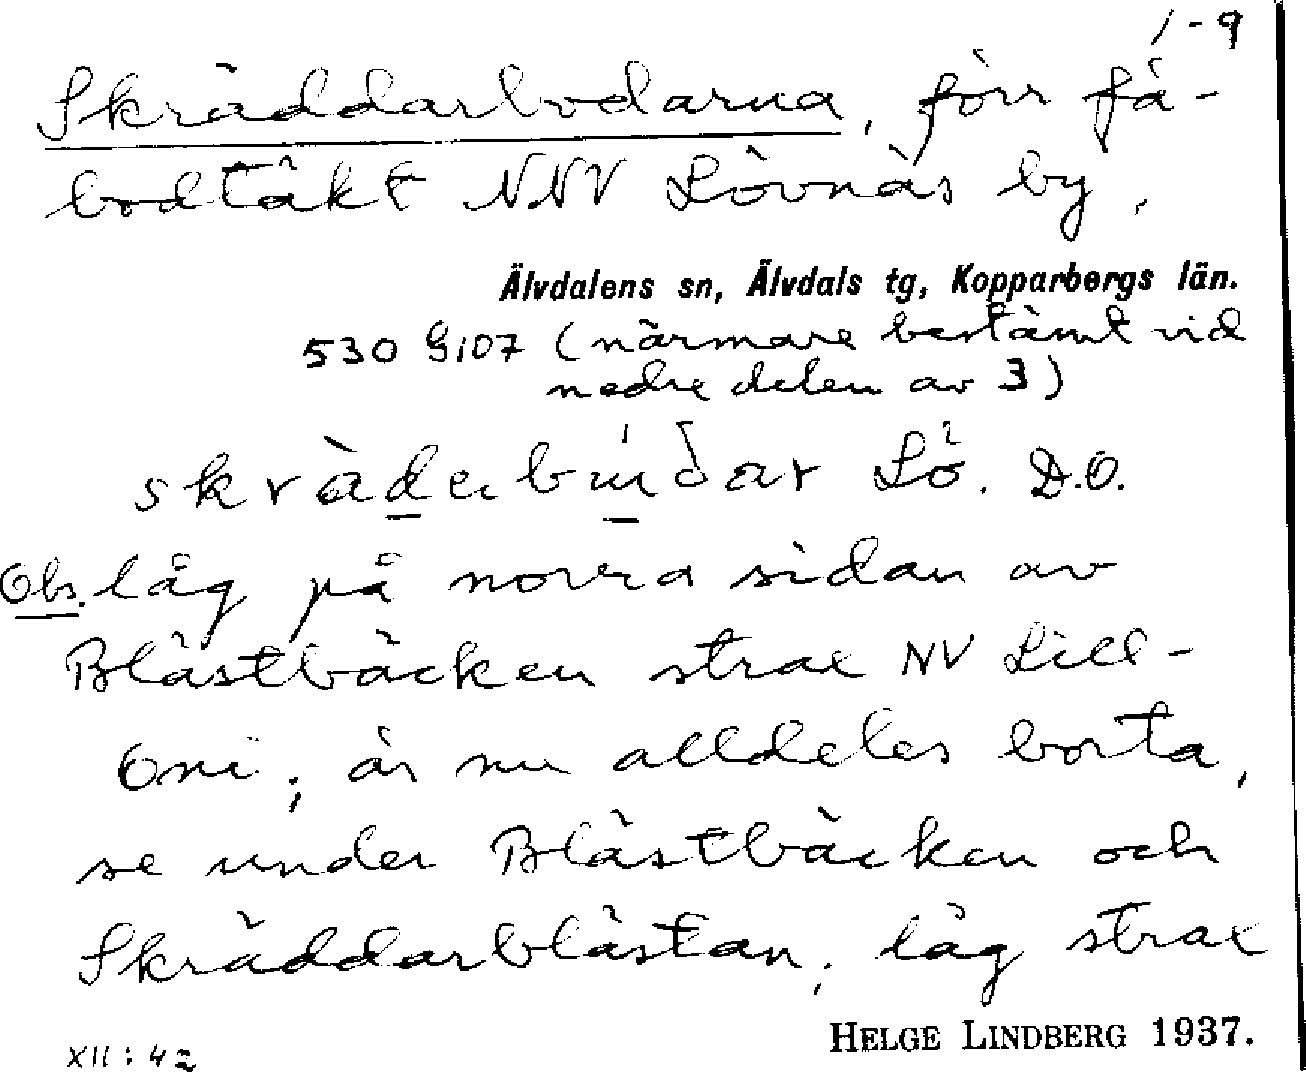 1-9
Skräddarbodarna, förr fä-
bodtäkt NNV Lövnäs by,
Älvdalens sn, Älvdals tg, Kopparbergs län.
530 GiD7 (närmare bestämt vid
nedre delen av 3)
Lö. D.O.
Obs. låg på norra sidan av
Blästbäcken strax NV Lill-
Oni; är nu alldeles borta,
se under Blästbäcken och
Skräddarblästan; låg strax
HELGE LINDBERG 1937.
XII:42